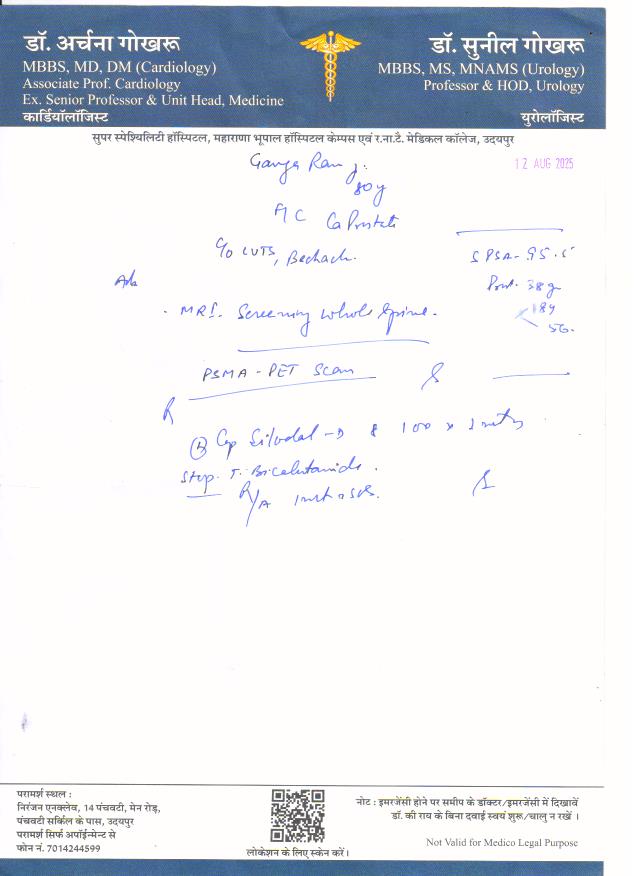 डॉ. अर्चना गोखरू
MBBS, MD, DM (Cardiology)
Associate Prof. Cardiology
Ex. Senior Professor & Unit Head, Medicine
कार्डियॉलॉजिस्ट
डॉ. सुनील गोखरू
MBBS, MS, MNAMS (Urology)
Professor & HOD, Urology
युरोलॉजिस्ट
सुपर स्पेश्यिलिटी हॉस्पिटल, महाराणा भूपाल हॉस्पिटल केम्पस एवं र.ना.टै. मेडिकल कॉलेज, उदयपुर
12 AUG 2025
Ganga Ram
80y
Ca Prostate
C/O LUTS, Backach.
S PSA - 95.5
38 gm
Adv
. MRI. Screening whole Spine.
PSMA - PET Scan
R
Cap Silodal - D 8
Stop. T. Bicalutamide.
R/A
परामर्श स्थल :
निरंजन एनक्लेव, 14 पंचवटी, मेन रोड़,
पंचवटी सर्किल के पास, उदयपुर
परामर्श सिर्फ अपॉईन्मेन्ट से
फोन नं. 7014244599
लोकेशन के लिए स्केन करें।
नोट : इमरजेंसी होने पर समीप के डॉक्टर/इमरजेंसी में दिखावें
डॉ. की राय के बिना दवाई स्वयं शुरू/चालु न रखें ।
Not Valid for Medico Legal Purpose